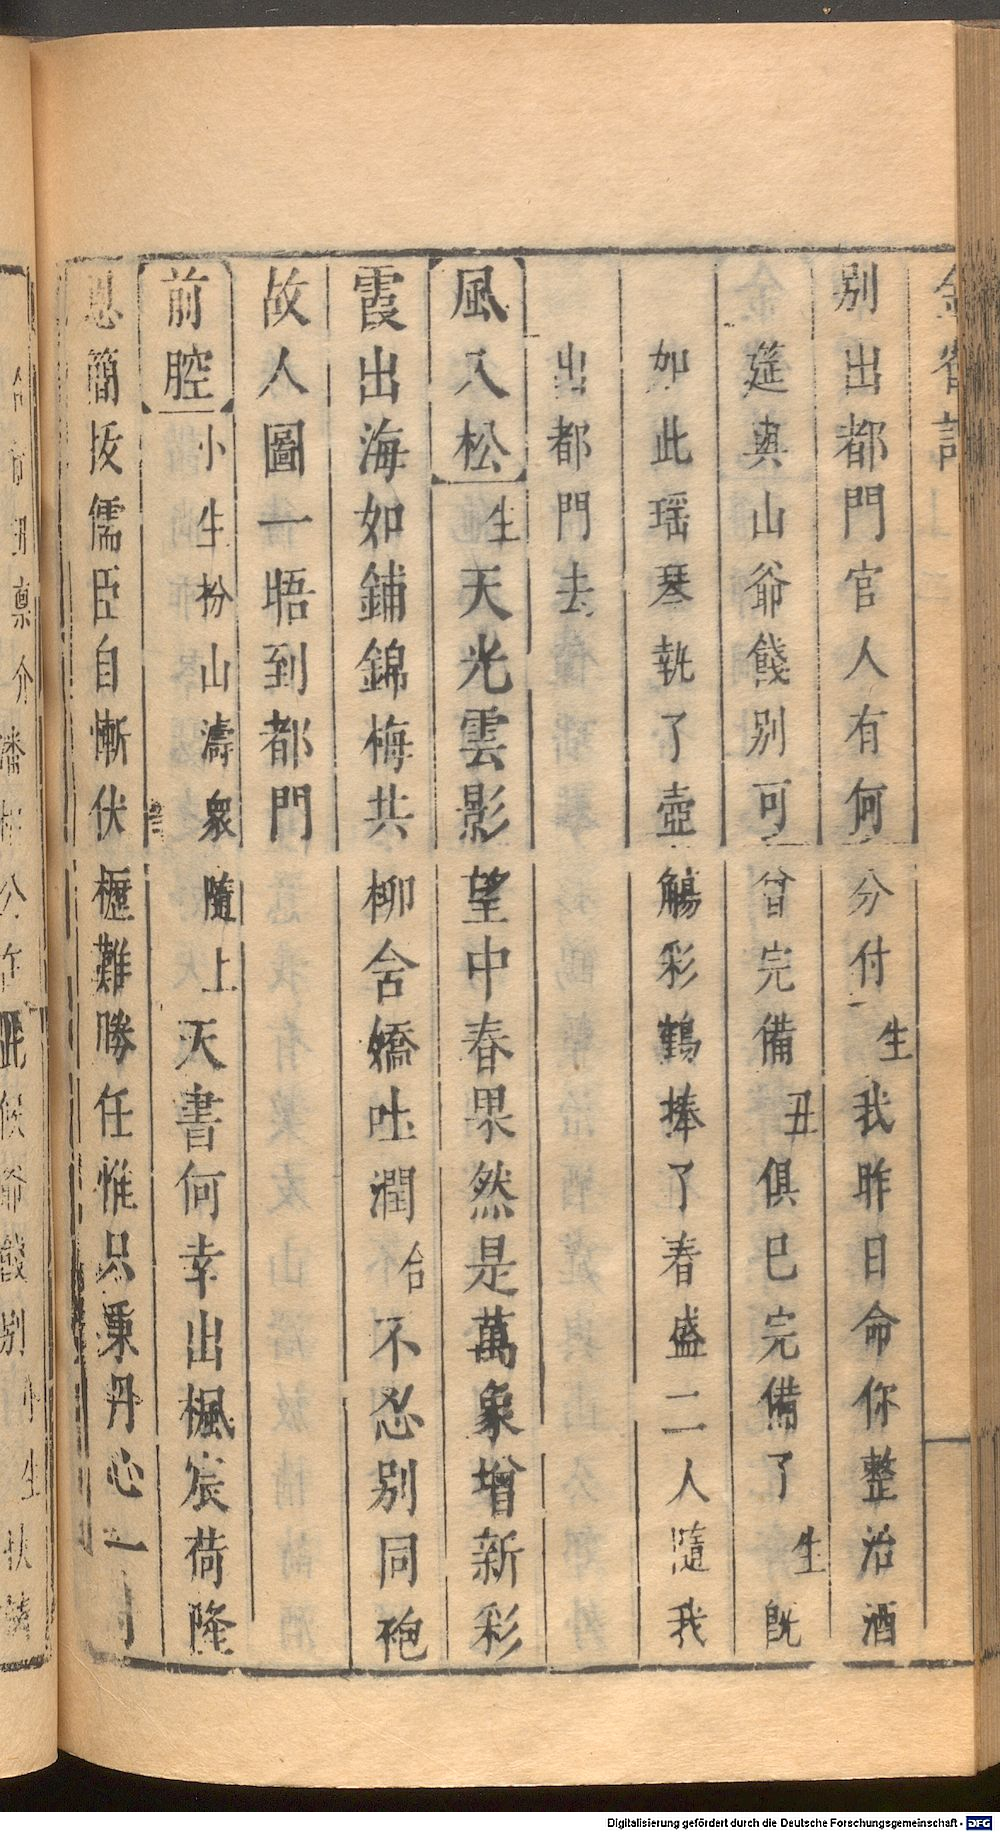 金雀記
別出都門官人有何分付生我昨日命你整治酒
筵與山爺餞別可曾完備丑俱已完備了生既
如此瑶琴執了壺觴彩鶴捧了春盛二人隨我
出都門去
風入松生天光雲影望中春果然是萬象增新彩
霞出海如鋪錦梅共柳舍嬌吐潤合不忍別同袍
故人圖一晤到都門
前腔小生扮山濤衆隨上天書何幸出楓宸荷隆
恩簡拔儒臣自慚伏櫪難勝任惟只秉丹心一
介潘相公在此候爺餞別小生
Digitalisierung gefördert durch die Deutsche Forschungsgemeinschaft - DFG